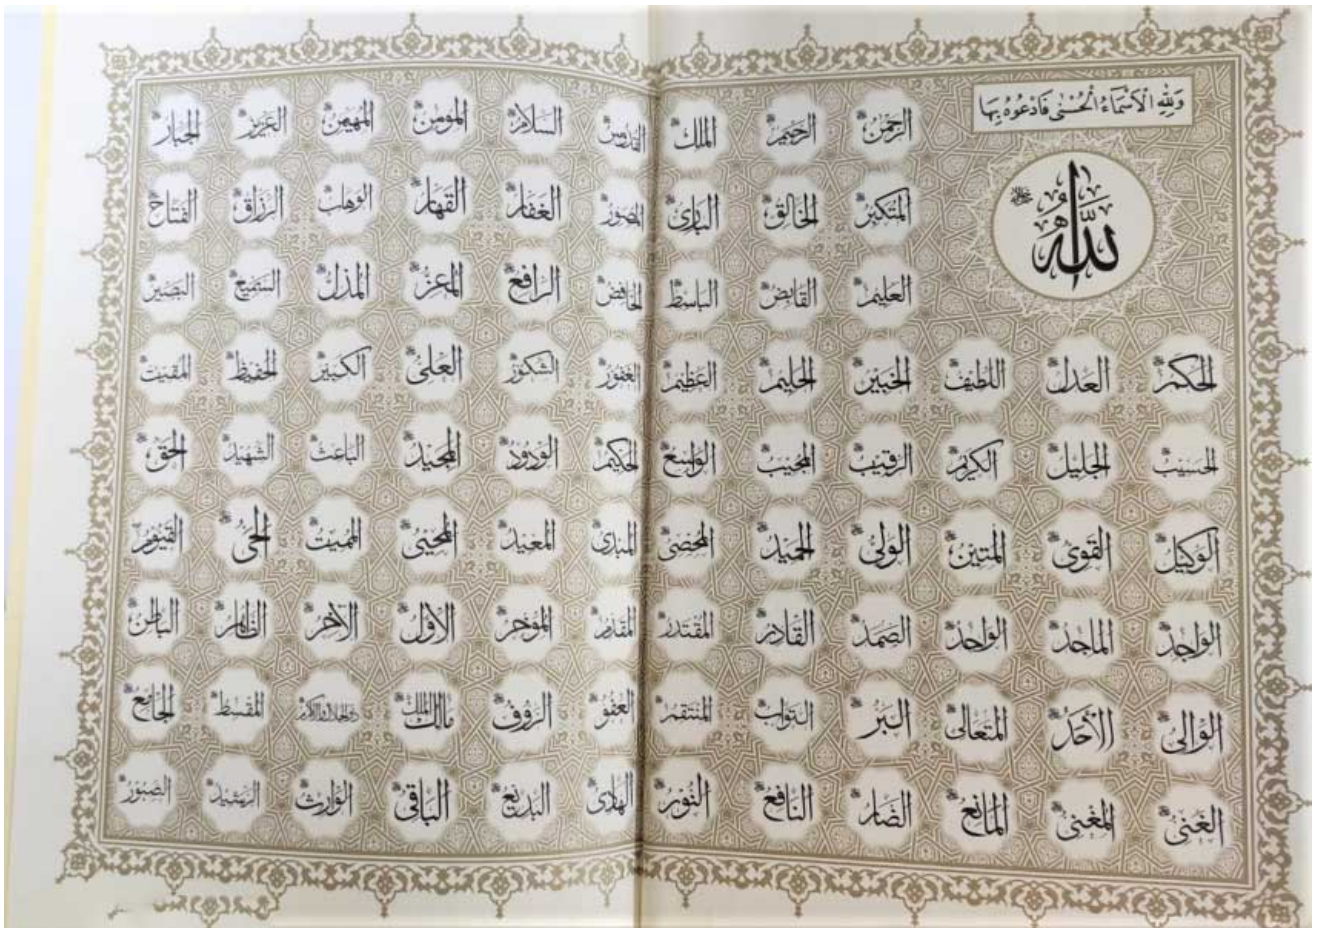 وَلِلّٰهِ الْاَسْمَاءُ الْحُسْنٰى فَادْعُوهُ بِهَا
اللّٰه جل جلاله
الرحمن الرحيم الملك القدوس السلام المؤمن المهيمن العزيز الجبار
المتكبر الخالق البارئ المصور الغفار القهار الوهاب الرزاق الفتاح
العليم القابض الباسط الخافض الرافع المعز المذل السميع البصير
الحكم العدل اللطيف الخبير الحليم العظيم الغفور الشكور العلى الكبير الحفيظ المقيت
الحسيب الجليل الكريم الرقيب المجيب الواسع الحكيم الودود المجيد الباعث الشهيد الحق
الوكيل القوى المتين الولى الحميد المحصى المبدئ المعيد المحيى المميت الحى القيوم
الواجد الماجد الواحد الصمد القادر المقتدر المقدم المؤخر الاول الآخر الظاهر الباطن
الوالى الاحد المتعالى البر التواب المنتقم العفو الرؤف مالك الملك ذو الجلال والاكرام المقسط الجامع
الغنى المغنى المانع الضار النافع النور الهادى البديع الباقى الوارث الرشيد الصبور